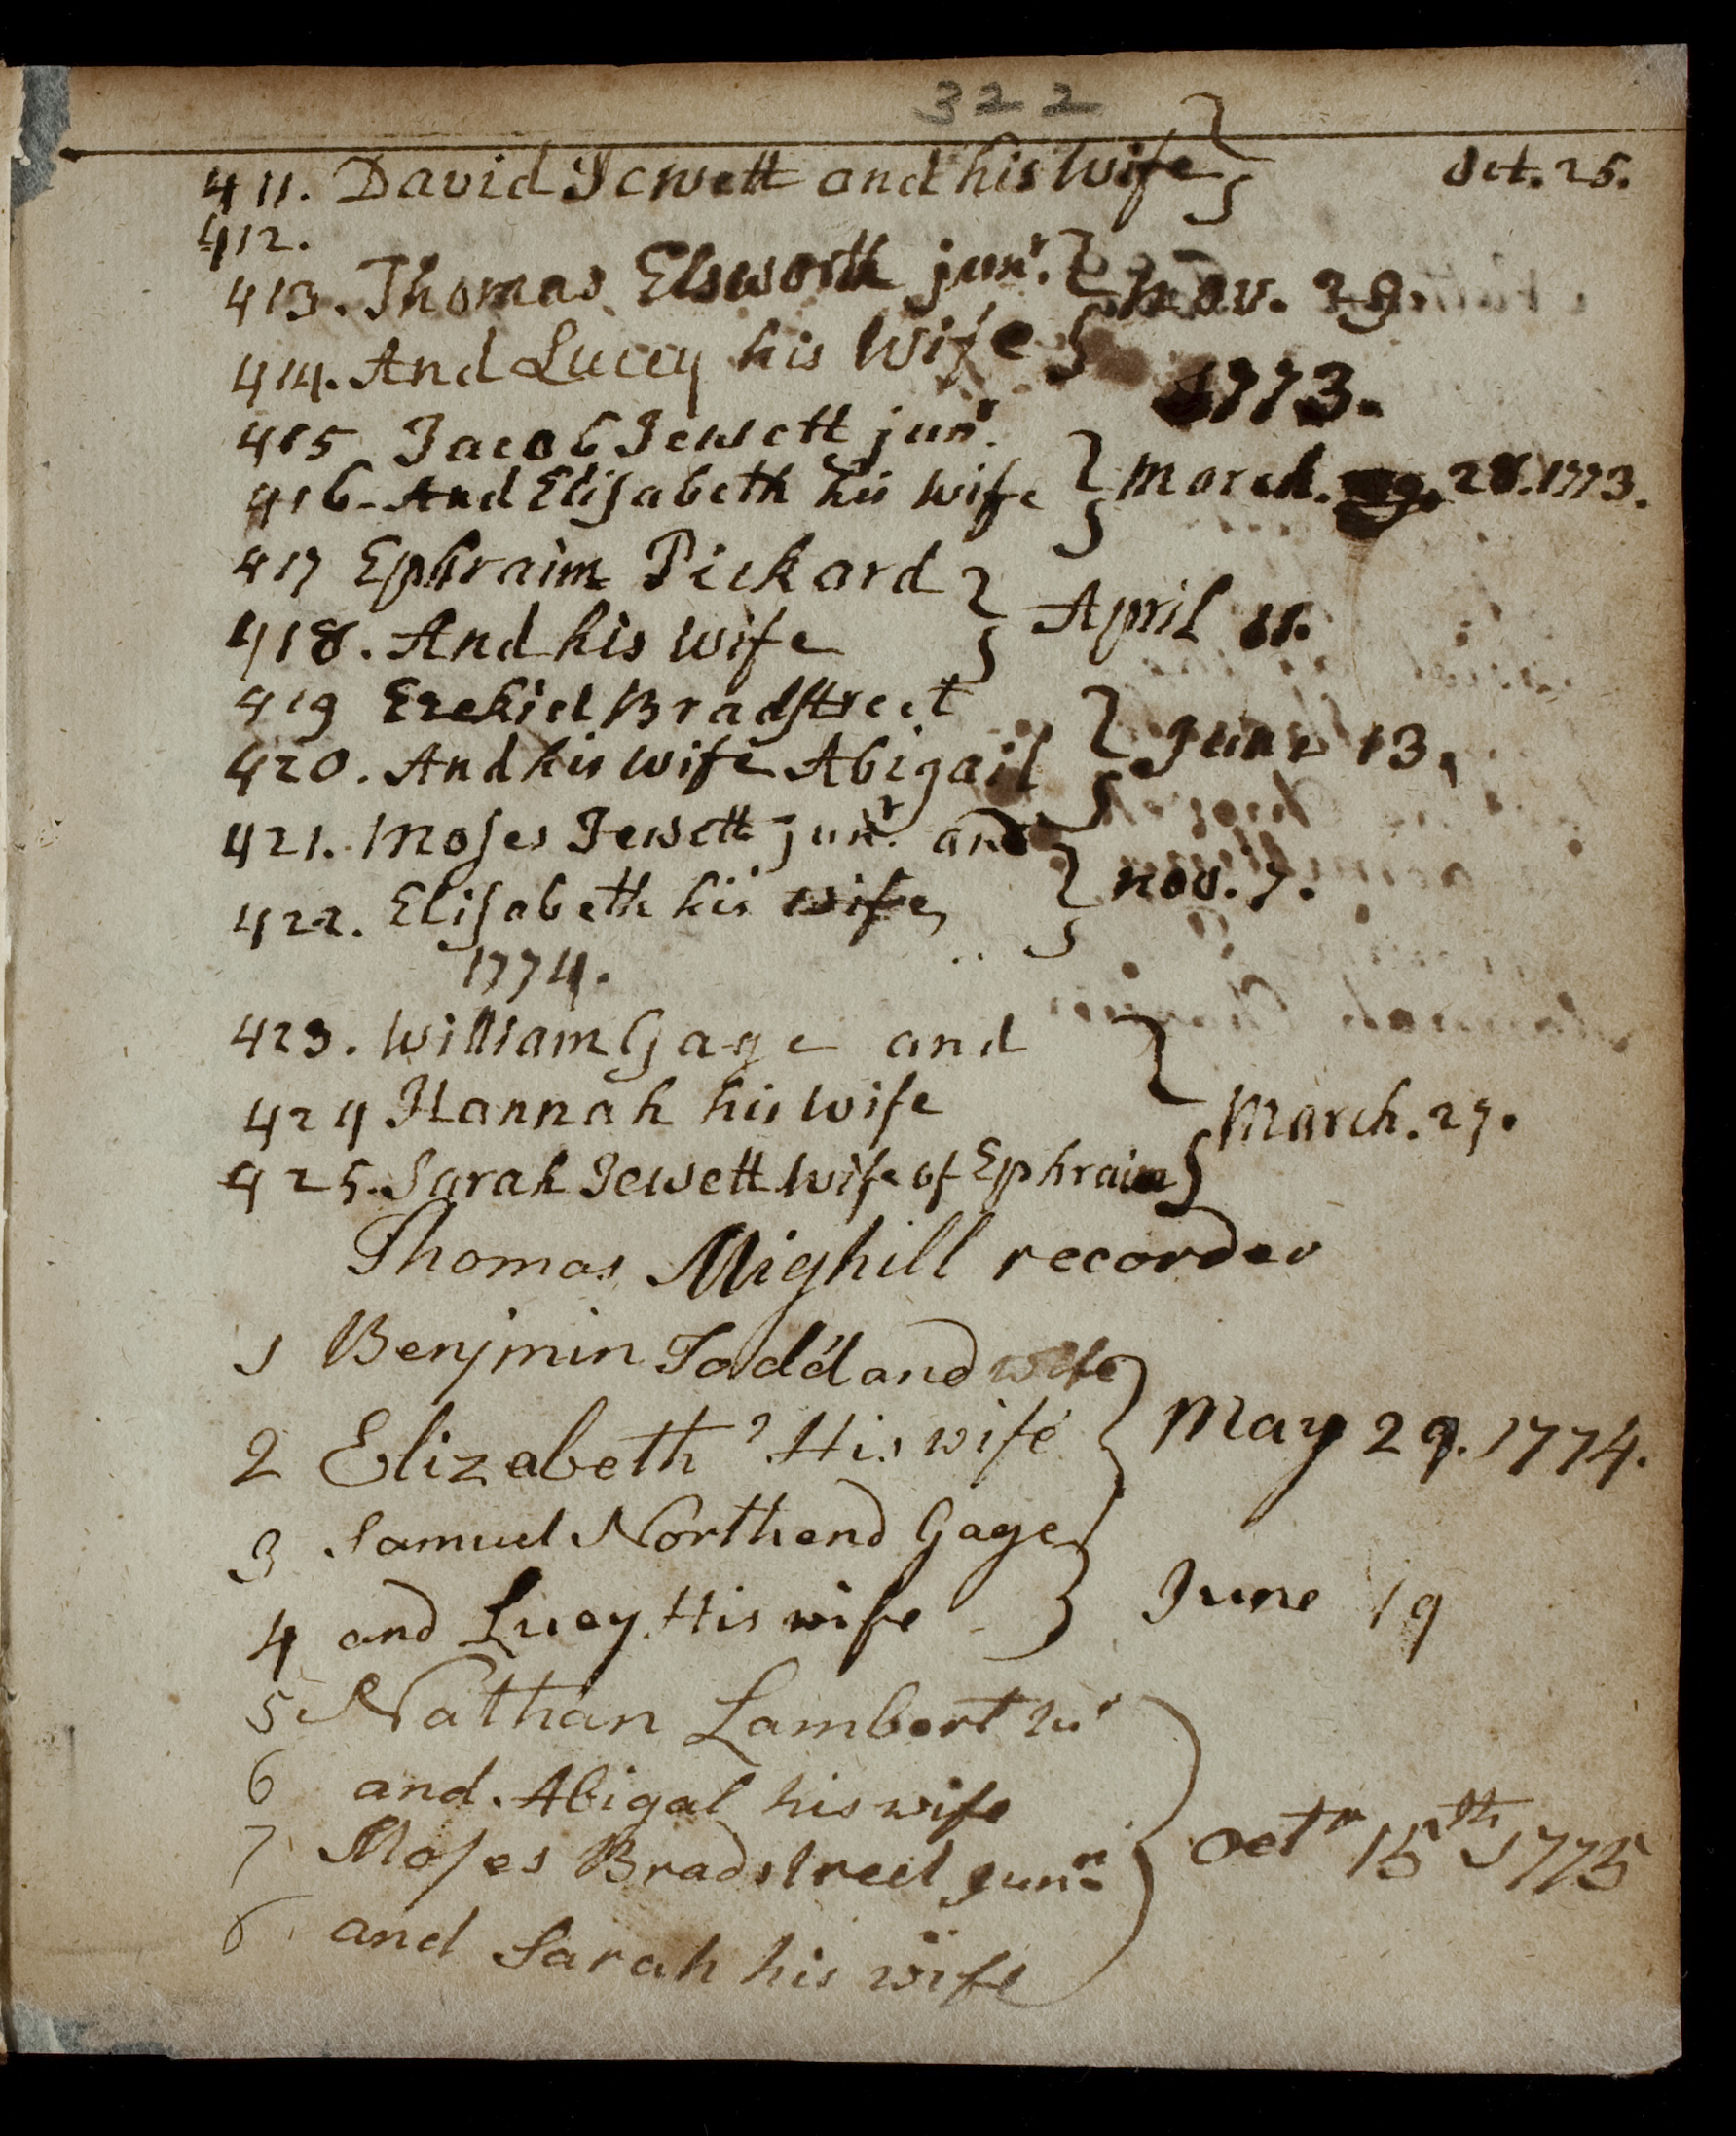 322
411. David Jewett and his Wife } Oct. 25.
412.
413. Thomas Elsworth junr. } Nov. 29.
414. And Lucey his Wife
1773.
415 Jacob Jewett junr.
416. And Elisabeth his wife } March. 28. 1773.
417 Ephraim Pickard } April 11.
418. And his wife
419 Ezekiel Bradstreet } June 13.
420. And his wife Abigail
421. Moses Jewett junr. and } nov. 7.
422. Elisabeth his wife,
1774.
423. William Gage and
424 Hannah his wife } March. 27.
425. Sarah Jewett wife of Ephraim
Thomas Mighill recorder
1 Benjmin Todd and wife
2 Elizabeth His wife } May 29. 1774.
3 Samuel Northend Gage
4 and Lucy His wife } June 19
5 Nathan Lambert Jur
6 and Abigal his wife
7 Moses Bradstreet junr } Octr 15th 1775
8 and Sarah his wife